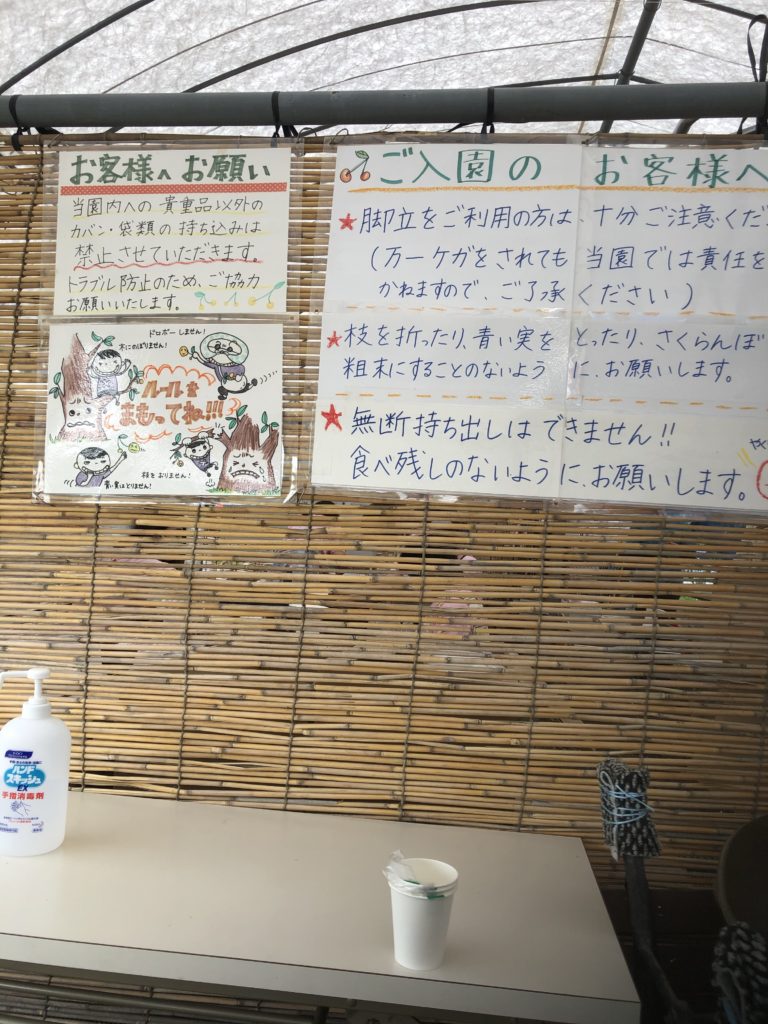 お客様へお願い
当園内への貴重品以外の
カバン・袋類の持ち込みは
禁止させていただきます。
トラブル防止のため、ご協力
お願いいたします。
ドロボーしません!
木にのぼりません!
ルールを
まもってね!!!
枝をおりません!
青い実はとりません!
ご入園の お客様へ
★脚立をご利用の方は、十分ご注意くだ
(万一ケガをされても 当園では責任を
かねますので、ご了承ください)
★枝を折ったり、青い実をとったり、さくらんぼ
粗末にすることのないように、お願いします。
★無断持ち出しはできません!!
食べ残しのないように、お願いします。
ハンド
スキッシュ
EX
手指消毒剤